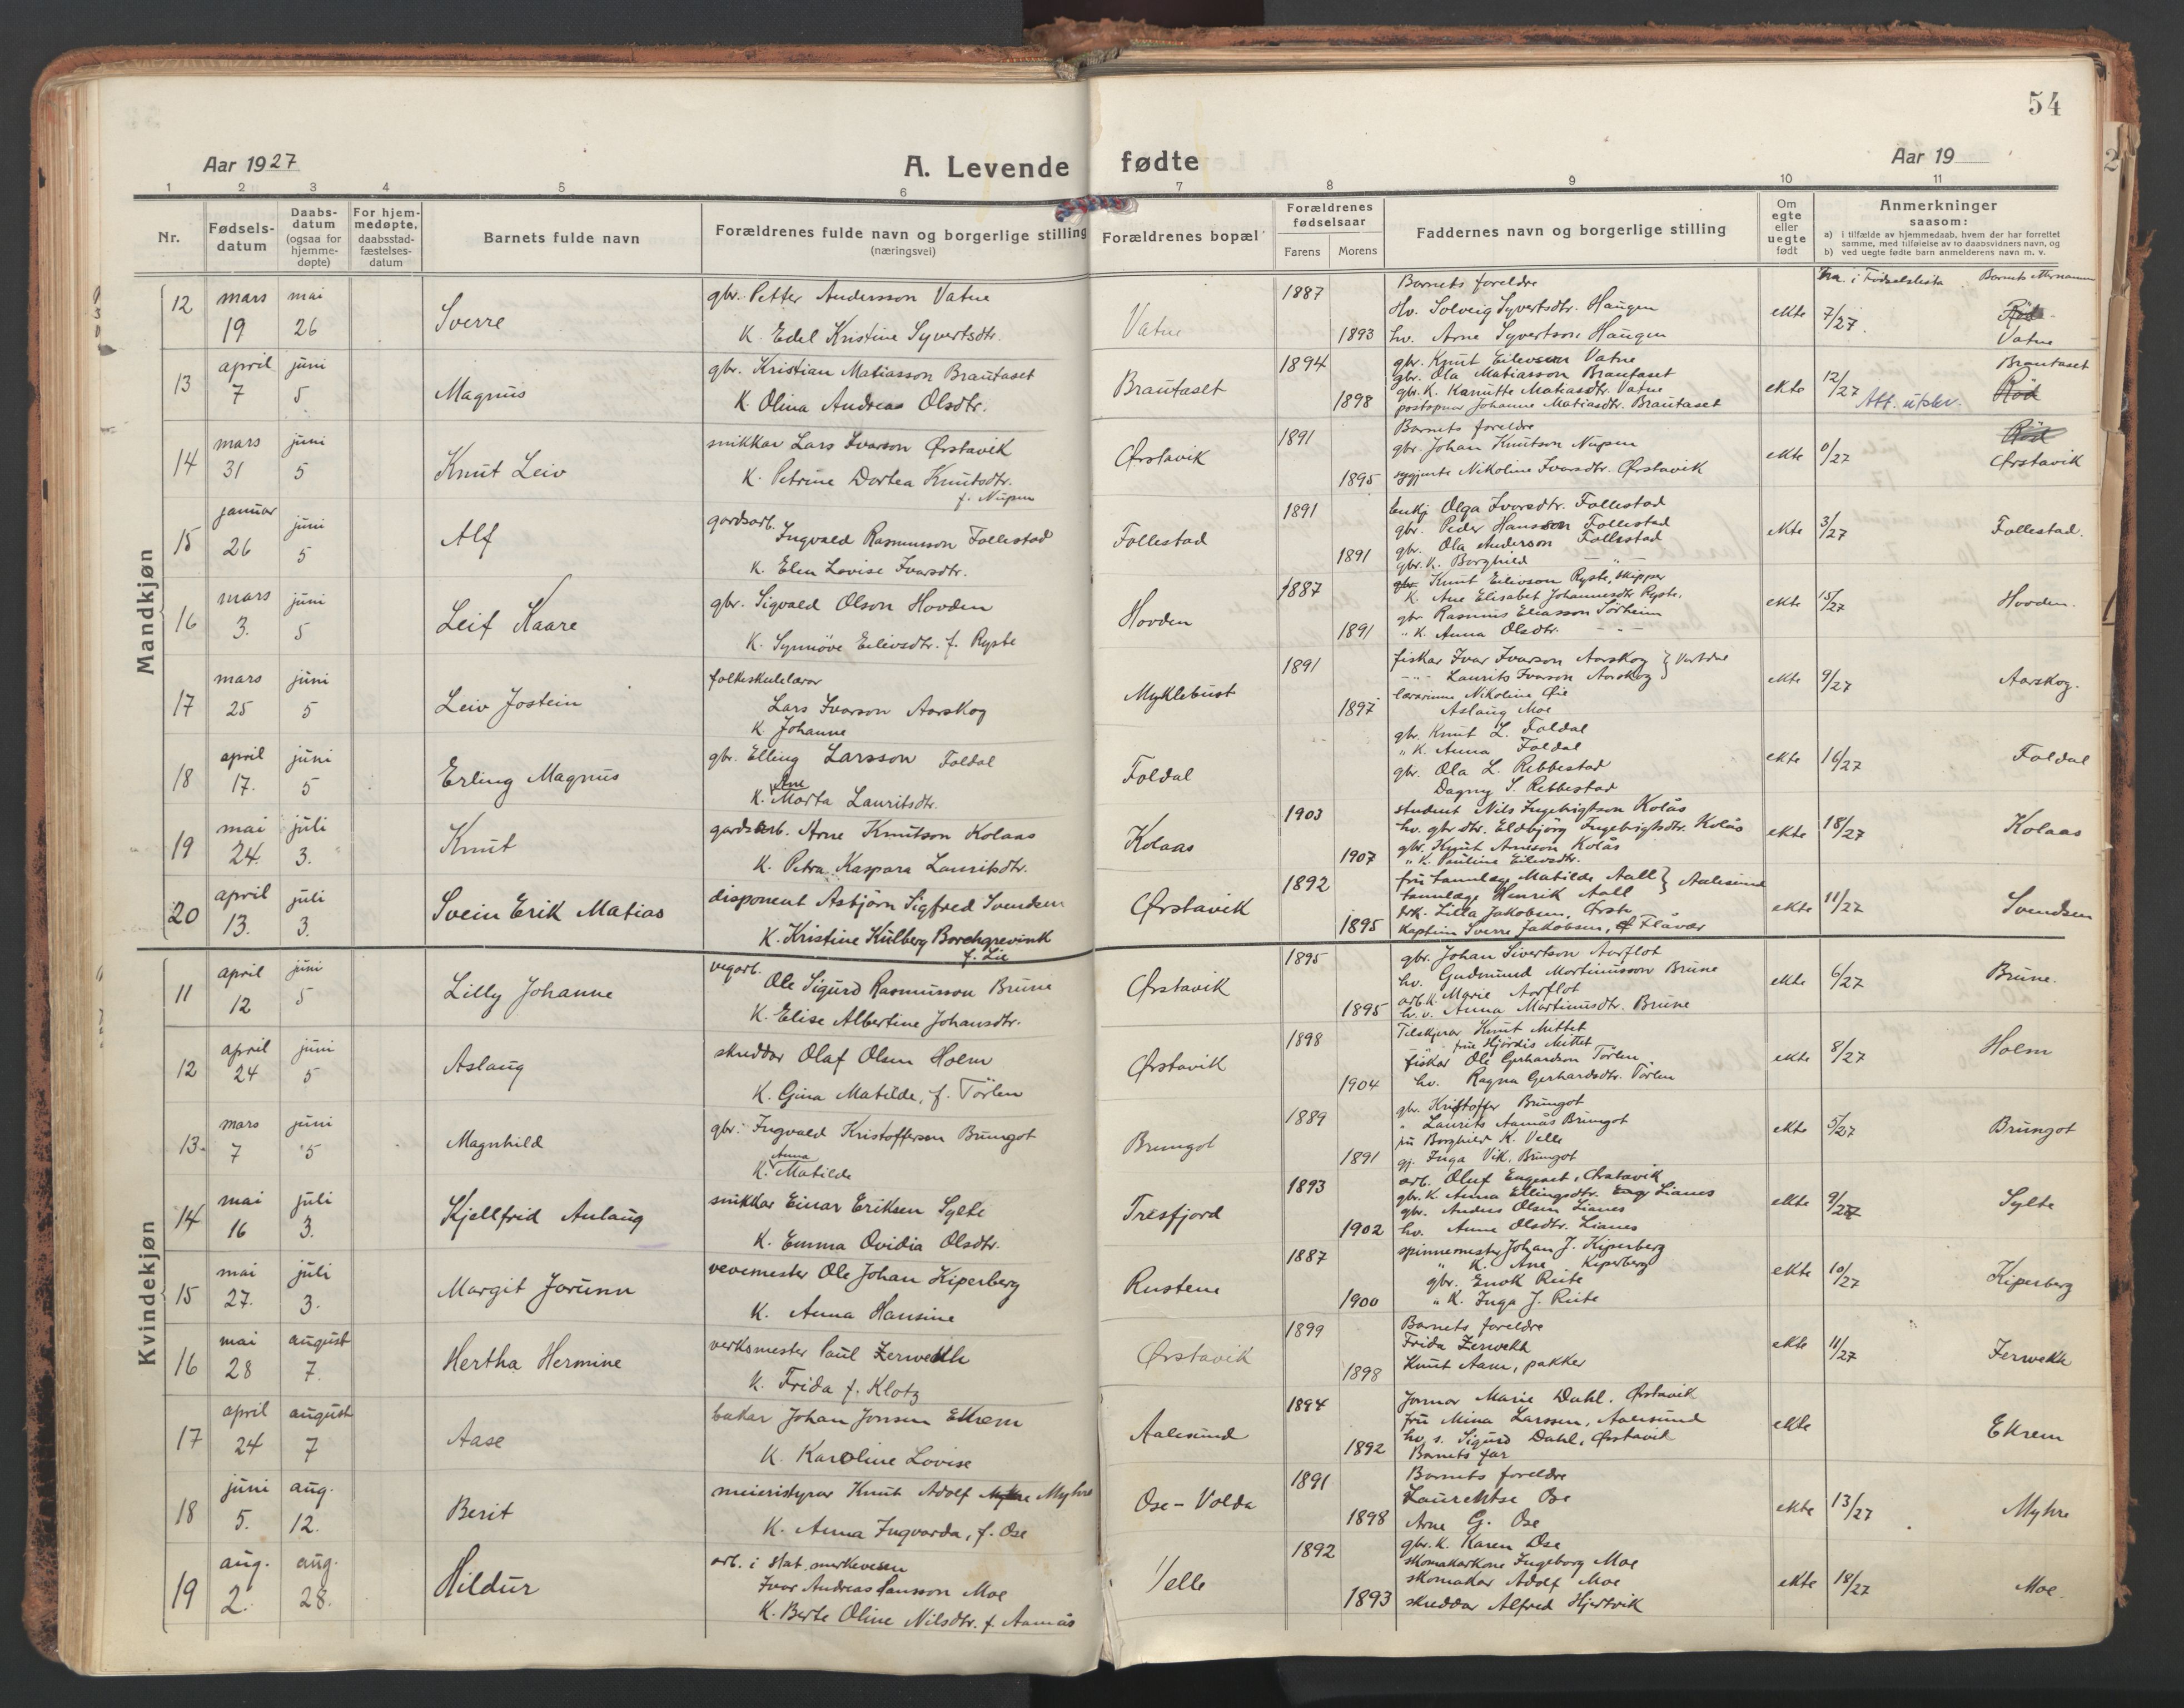 54
Aar 1927
A. Levende fødte
Aar 19
1 2 3 4 5 6 7 8 9 10 11
Nr.
Fødsels-datum
Daabs-datum (ogsaa for hjemme-døpte)
For hjem-medøpte, daabsstad-fæstelses-datum
Barnets fulde navn
Forældrenes fulde navn og borgerlige stilling (næringsvei)
Forældrenes bopæl
Forældrenes fødselsaar
Farens Morens
Faddernes navn og borgerlige stilling
Om egte eller uegte født
Anmerkninger saasom:
a) i tilfælde av hjemmedaab, hvem der har forrettet samme, med tilføielse av to daabsvidners navn, og
b) ved uegte fødte barn anmelderens navn m. v.
Nr. i Fødselslista Barnets etternamn
Mandkjøn
12 mars 19 mai 26 Sverre
gbr. Petter Andersson Vatne
K. Edel Kristine Syvertsdtr.
Vatne 1887 1893
Barnets foreldre
Hv. Solveig Syvertsdtr. Haugen
hv. Arne Syvertson Haugen
ekte 7/27 Vatne
13 april 7 juni 5 Magnus
gbr. Kristian Matiasson Brautaset
K. Olina Andreas Olsdtr.
Brautaset 1894 1898
gbr. Knut Eilevson Vatne
gbr. Ola Matiasson Brautaset
gbr. K. Kanutte Matiasdtr. Vatne
postopnar Johanne Matiasdtr. Brautaset
ekte 12/27 Att. utskr. Brautaset
14 mars 31 juni 5 Knut Leiv
snikkar Lars Ivarson Ørstavik
K. Petrine Dortea Knutsdtr.
f. Nupen
Ørstavik 1891 1895
Barnets foreldre
gbr. Johan Knutson Nupen
sygjente Nikoline Ivarsdtr. Ørstavik
ekte 0/27 Ørstavik
15 januar 26 juni 5 Alf
gardsarb. Ingvald Rasmusson Follestad
K. Elen Lovise Ivarsdtr.
Follestad 1891 1891
Olga Ivarsdtr. Follestad
gbr. Peder Hansson Follestad
gbr. Ola Anderson Follestad
gbr. K. Borghild "
ekte 3/27 Follestad.
16 mars 3. juni 5 Leif Kaare
gbr. Sigvald Olson Hovden
K. Synnöve Eilevsdtr. f. Ryste
Hovden 1887 1891
Knut Eilevson Ryste, skipper
K. Ane Elisabet Johannesdtr Ryste.
gbr Rasmus Eliasson Sörheim
" K. Anna Olsdtr. - - -
ekte 15/27 Hovden.
17 mars 25 juni 5 Leiv Jostein
folkeskulelærar
Lars Ivarson Aarskog
K. Johanne
Myklebust 1891 1897
fiskar Ivar Ivarson Aarskog } Vartdal
-"- Laurits Ivarson Aarskog
lærarinne Nikoline Øie
Aslaug Moe
ekte 9/27 Aarskog.
18 april 17. juni 5 Erling Magnus
gbr. Elling Larsson Foldal
K. Ane Marta Lauritsdtr.
Foldal
gbr. Knut L. Foldal
" K. Anna Foldal
gbr. Ola L. Rebbestad
Dagny S. Rebbestad
ekte 16/27 Foldal
19 mai 24. juli 3. Knut
gardsarb. Arne Knutson Kolaas
K. Petra Kaspara Lauritsdtr.
Kolaas 1903 1907
student Nils Ingebrigtson Kolås
hv. gbr dtr. Eldbjörg Ingebrigtsdtr. Kolås
gbr. Knut Arneson Kolås
" K. Pauline Eilevsdtr.
ekte 18/27 Kolaas
20 april 13. juli 3. Svein Erik Matias
disponent Asbjörn Sigfred Svendsen
K. Kristine Kulberg Borchgrevink
f. Lie
Ørstavik 1892 1895
fru tannlæge Matilde Aall } Aalesund
tannlæge Henrik Aall
frk. Lilla Jakobsen, Ørsta
Kaptein Sverre Jakobsen, Flåvær
ekte 11/27 Svendsen
Kvindekjøn
11 april 12 juni 5 Lilly Johanne
vegarb. Ole Sigurd Rasmusson Brune
K. Elise Albertine Johansdtr.
Ørstavik 1895 1895
gbr. Johan Sivertson Aarflot
hv. Gudmund Martinusson Brune
arb. K. Marie Aarflot
h. v. Anna Martinusdtr. Brune
ekte 6/27 Brune.
12 april 24 juni 5 Aslaug
skreddar Olaf Olsen Holm
K. Gina Matilde, f. Törlen
Ørstavik 1898 1904
Tilskjerar Knut Mittet
" fru Hjördis Mittet
fiskar Ole Gerhardson Törlen
hv. Ragna Gerhardsdtr. Törlen
ekte 8/27 Holm
13. mars 7 juni 5 Magnhild
gbr. Ingvald Kristoffersen Brungot
K. Anna Matilde
Brungot 1889 1891
gbr. Kristoffer Brungot
" Laurits Aamås Brungot
fru Borghild K. Velle
gj. Inga Vik, Brungot
ekte 5/27 Brungot
14 mai 16 juli 3. Kjellfrid Aulaug
snikkar Einar Eriksen Sylte
K. Emma Ovidia Olsdtr.
Tresfjord 1893 1902
arb. Oluf Engeset, Ørstavik
gbr. K. Anna Ellingsdtr. Lianes
gbr. Anders Olsen Lianes
hv. Anna Olsdtr. Lianes
ekte 9/27 Sylte
15 mai 27. juli 3. Margit Jorunn
vevemester Ole Johan Kiperberg
K. Anna Hansine
Rustene 1887 1900
spinnemester Johan J. Kiperberg
" K. Ane Kiperberg
gbr. Enok Reite
" K. Inga J. Reite
ekte 10/27 Kiperberg
16 mai 28 august 7. Hertha Hermine
verksmester Paul Zerwekh
K. Frida f. Klotz
Ørstavik 1899 1898
Barnets foreldre
Frida Zerwekh
Knut Aam, pakker
ekte 11/27 Zerwekh
17 april 24 august 7 Aase
bakar Johan Jonsen Ekrem
K. Karoline Lovise
Aalesund 1894 1892
Jormor Marie Dahl. Ørstavik
fru Mina Larssen, Aalesund
hv. s. Sigurd Dahl, Ørstavik
Barnets far
ekte Ekrem
18 juni 5. aug. 12. Berit
meieristyrar Knut Adolf Myhre
K. Anna Ingvarda, f. Ose
Ose - Volda 1891 1898
Barnets foreldre
Laurentse Ose
Arne G. Ose
ekte 13/27 Myhre
19 aug. 2. aug. 28. Hildur
arb. i stat. merkevesen
Ivar Andreas Hansson Moe
K. Berte Oline Nilsdtr. f. Aamås
Velle 1892 1893
gbr. K. Karen Ose
skomakarkone Ingeborg Moe
skomakar Adolf Moe
skreddar Alfred Hjertvik
ekte 18/27 Moe.